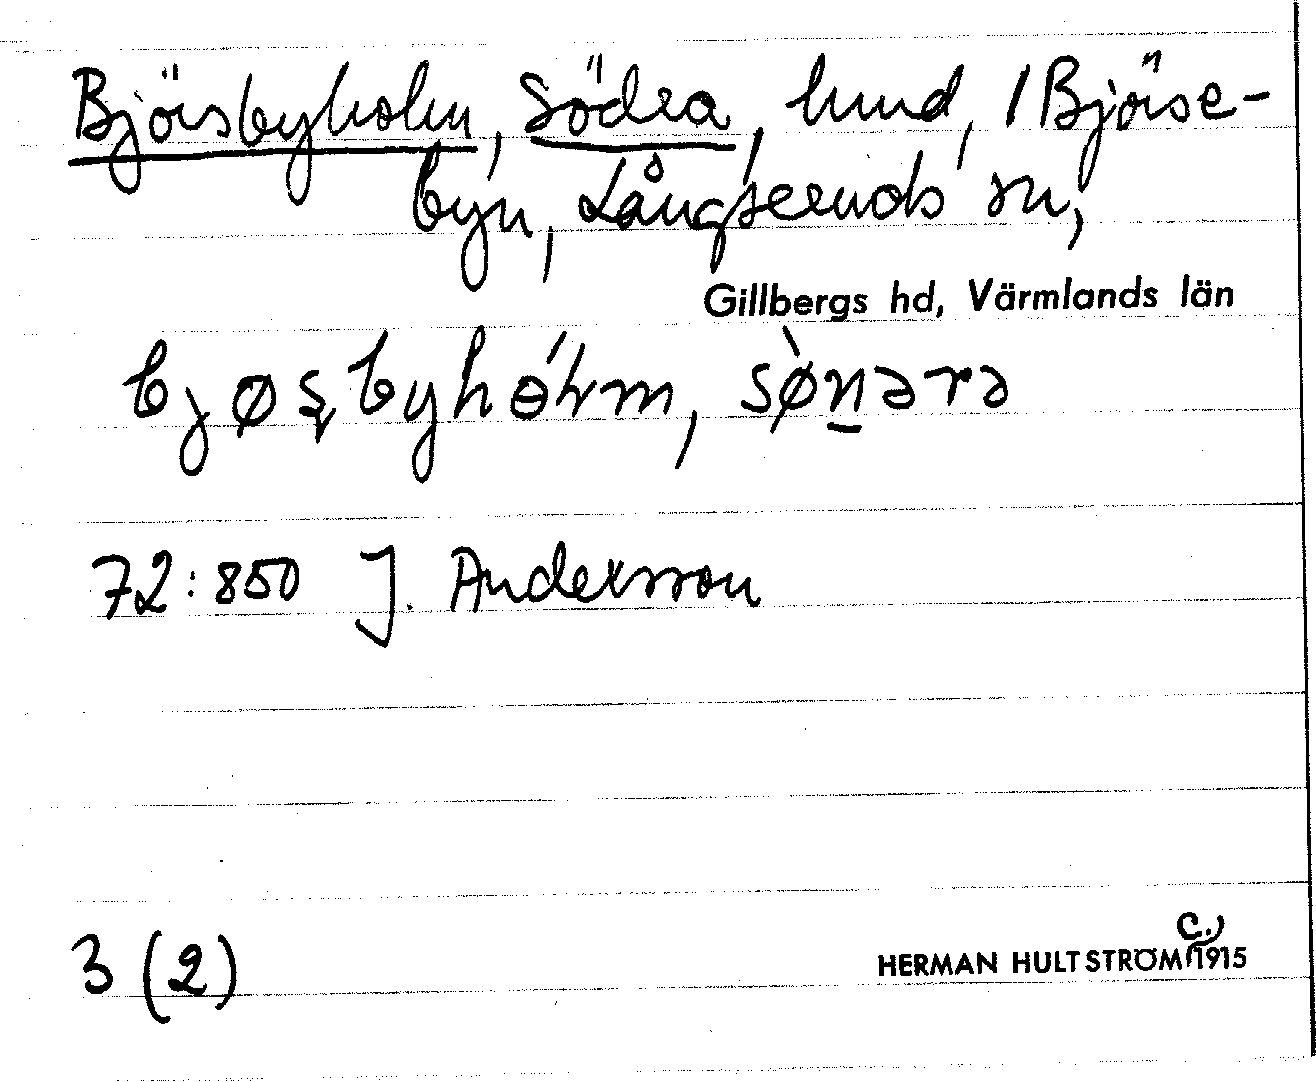 Björsbyholm, Södra, hmd, / Björse-
byn, Långseruds sn,
Gillbergs hd, Värmlands län
bjøꞩbyhɵ́ɫm, sø̀n̲ərə
72:850 J. Andersson
3 (2)
HERMAN HULTSTRÖM (c.) 1915